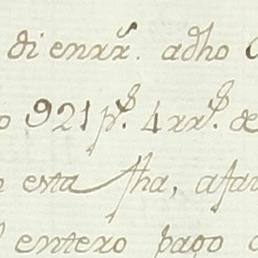 di enrrª. adho
921 p.s 4 rr.s de
esta fha, afa
entero pago